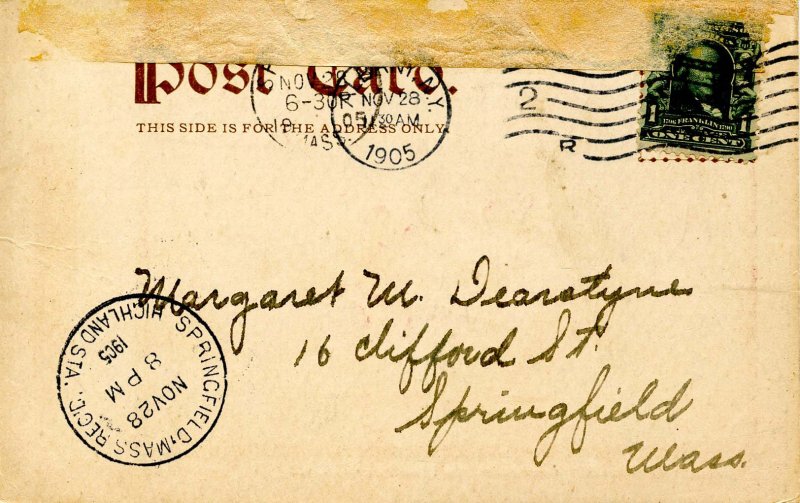 Post Card.
THIS SIDE IS FOR THE ADDRESS ONLY.
NOV 28
6-30P
MASS.
N.Y.
NOV 28
1905
2
R
1706 FRANKLIN 1790
1 1
ONE CENT
Margaret M. Dearstyne
16 Clifford St.
Springfield
Mass.
SPRINGFIELD, MASS. REC'D.
HIGHLAND STA.
NOV 28
8 PM
1905